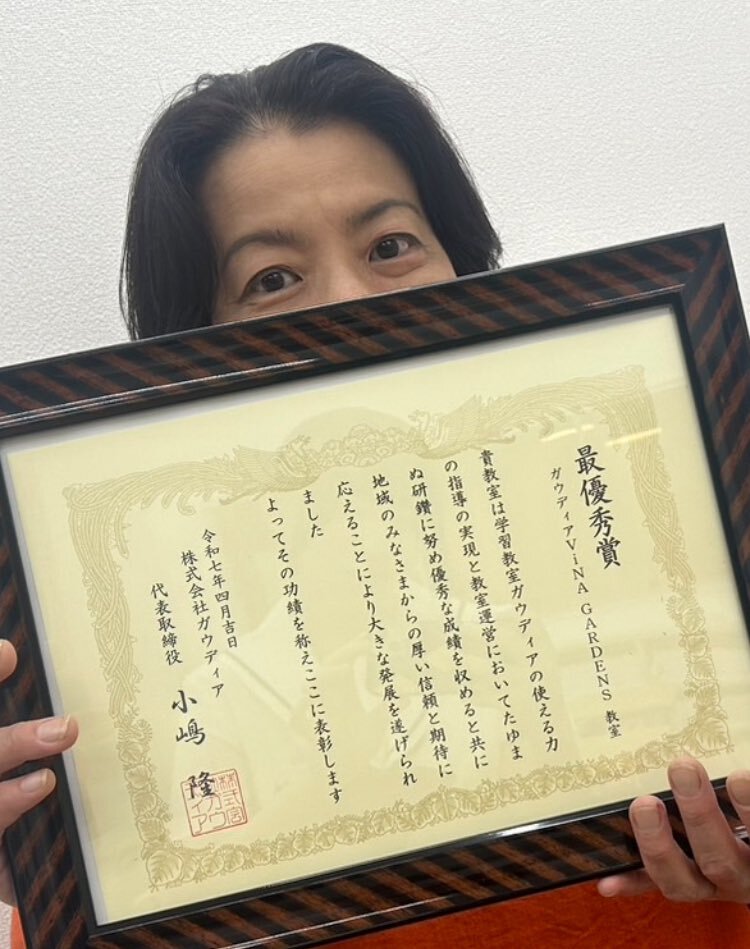 最優秀賞
ガウディアViNA GARDENS 教室
貴教室は学習教室ガウディアの使える力
の指導の実現と教室運営においてたゆま
ぬ研鑽に努め優秀な成績を収めると共に
地域のみなさまからの厚い信頼と期待に
応えることにより大きな発展を遂げられ
ました
よってその功績を称えここに表彰します
令和七年四月吉日
株式会社ガウディア
代表取締役 小嶋 隆
株式会
社ガウ
ディア